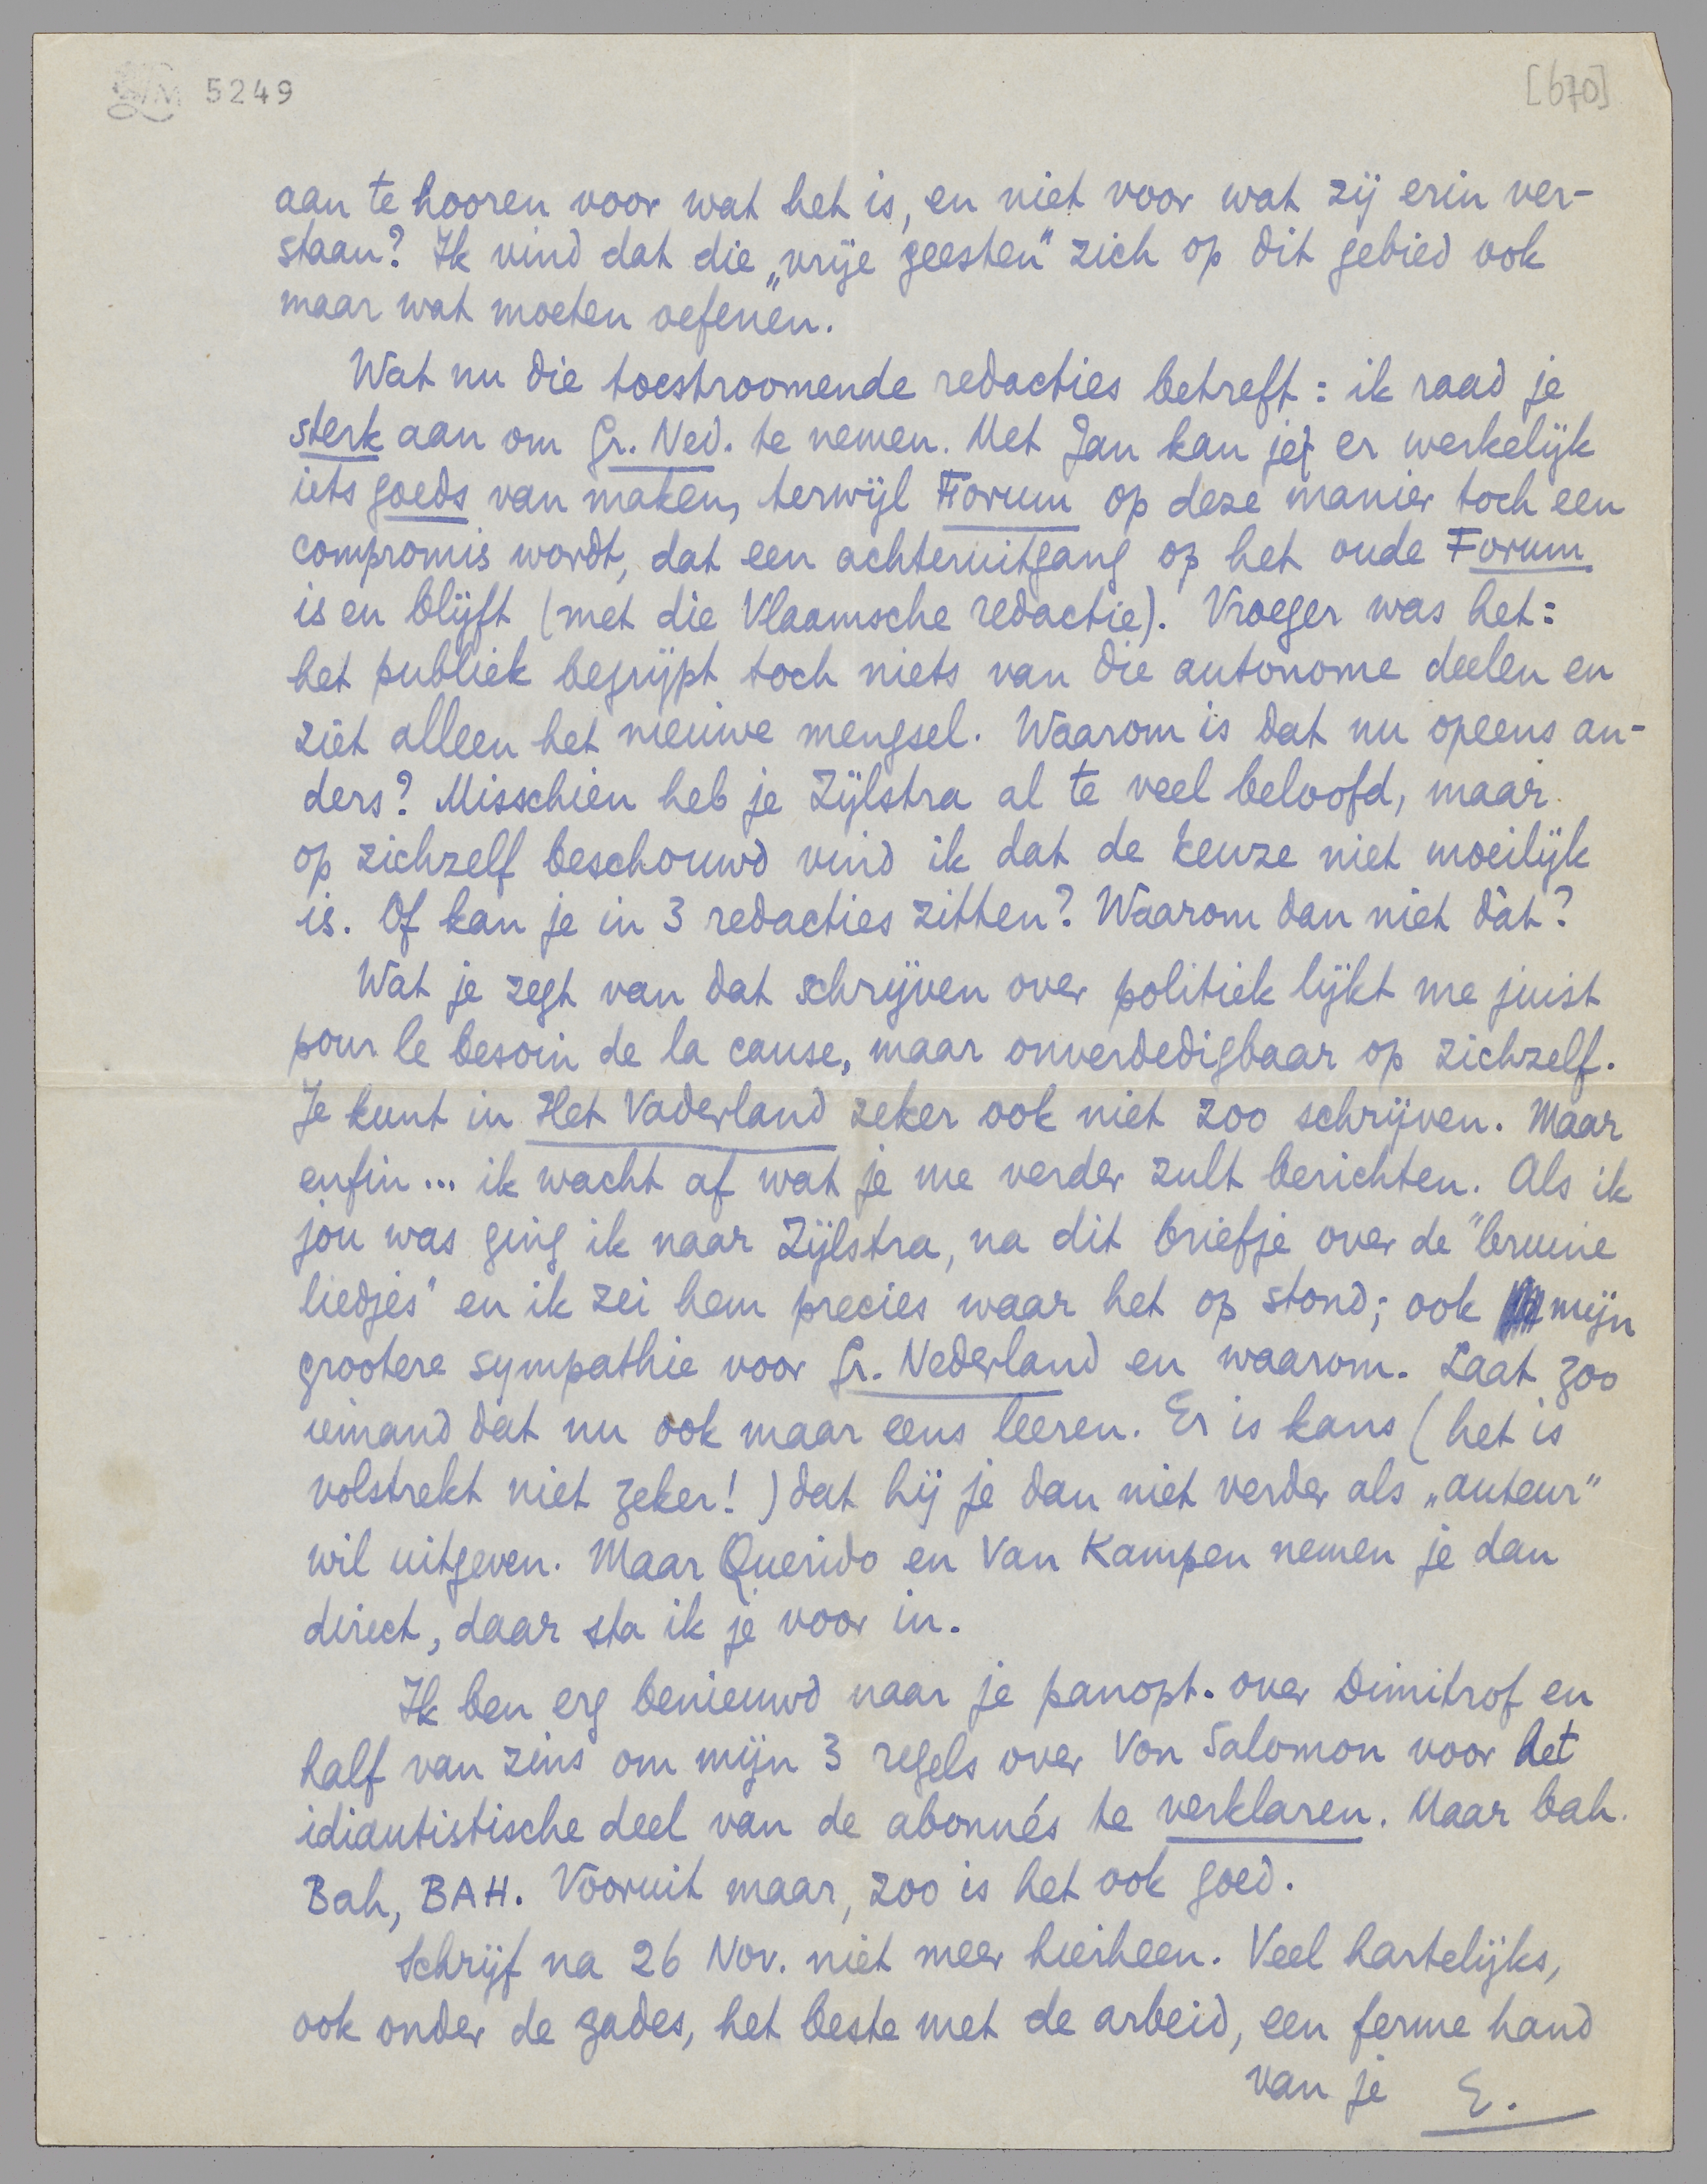 LM 5249
[670]
aan te hooren voor wat het is, en niet voor wat zij erin ver-
staan? Ik vind dat die „vrije geesten" zich op dit gebied ook
maar wat moeten oefenen.
Wat nu die toestroomende redacties betreft: ik raad je
sterk aan om Gr. Ned. te nemen. Met Jan kan je er werkelijk
iets goeds van maken, terwijl Forum op deze manier toch een
compromis wordt, dat een achteruitgang op het oude Forum
is en blijft (met die Vlaamsche redactie). Vroeger was het:
het publiek begrijpt toch niets van die autonome deelen en
ziet alleen het nieuwe mengsel. Waarom is dat nu opeens an-
ders? Misschien heb je Zijlstra al te veel beloofd, maar
op zichzelf beschouwd vind ik dat de keuze niet moeilijk
is. Of kan je in 3 redacties zitten? Waarom dan niet dàt?
Wat je zegt van dat schrijven over politiek lijkt me juist
pour le besoin de la cause, maar onverdedigbaar op zichzelf.
Je kunt in Het Vaderland zeker ook niet zoo schrijven. Maar
enfin... ik wacht af wat je me verder zult berichten. Als ik
jou was ging ik naar Zijlstra, na dit briefje over de "bruine
liedjes" en ik zei hem precies waar het op stond; ook mijn
grootere sympathie voor Gr. Nederland en waarom. Laat zoo
iemand dat nu ook maar eens leeren. Er is kans (het is
volstrekt niet zeker!) dat hij je dan niet verder als „auteur"
wil uitgeven. Maar Querido en Van Kampen nemen je dan
direct, daar sta ik je voor in.
Ik ben erg benieuwd naar je panopt. over Dimitrof en
half van zins om mijn 3 regels over Von Salomon voor het
idiautistische deel van de abonnés te verklaren. Maar bah.
Bah, BAH. Vooruit maar, zoo is het ook goed.
Schrijf na 26 Nov. niet meer hierheen. Veel hartelijks,
ook onder de gades, het beste met de arbeid, een ferme hand
van je E.